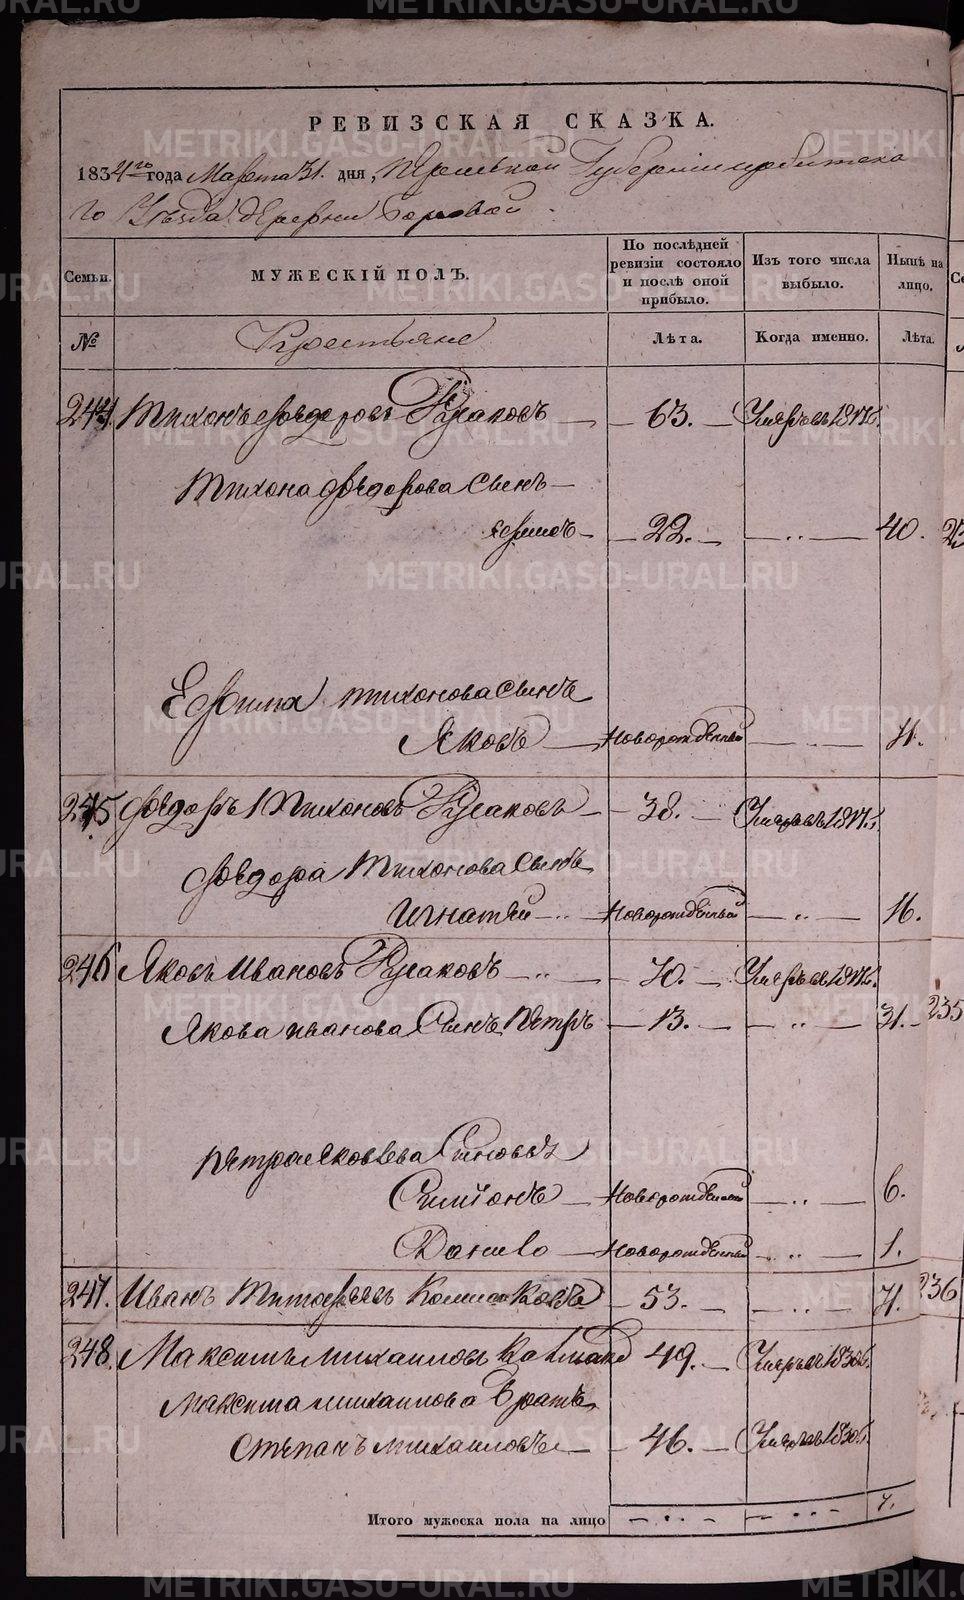 РЕВИЗСКАЯ СКАЗКА.
1834го года Марта 31. дня, Пермской Губернии Ирбитска
го Уѣзда деревни Боровой
Семьи. МУЖЕСКІЙ ПОЛЪ. По послѣдней ревизіи состояло и послѣ оной прибыло. Изъ того числа выбыло. Нынѣ на лицо.
№ Крестьяне Лѣта. Когда именно. Лѣта.
244. Тихонъ Федоровъ Русаковъ 63. Умеръ въ
Тихона Федорова Сынъ
Ефимъ 22. 40.
Ефима Тихонова Сынъ
Яковъ Новорожденный
245. Федоръ Тихоновъ Русаковъ 38. Умеръ въ
Федора Тихонова Сынъ
Игнатей Новорожденный 16.
246 Яковъ Ивановъ Русаковъ 70. Умеръ въ
Якова Иванова Сынъ Петръ 13. 31. 235
Петра Яковлева Сыновья
Симионъ Новорожденный 6.
Данило Новорожденный 1.
247. Иванъ 53. 71. 236
248. Максимъ Михаиловъ 49. Умеръ въ 1830.
Максима Михаилова Братъ
Степанъ Михаиловъ 46. Умеръ въ 1830.
Итого мужеска пола на лицо 7.
METRIKI.GASO-URAL.RU